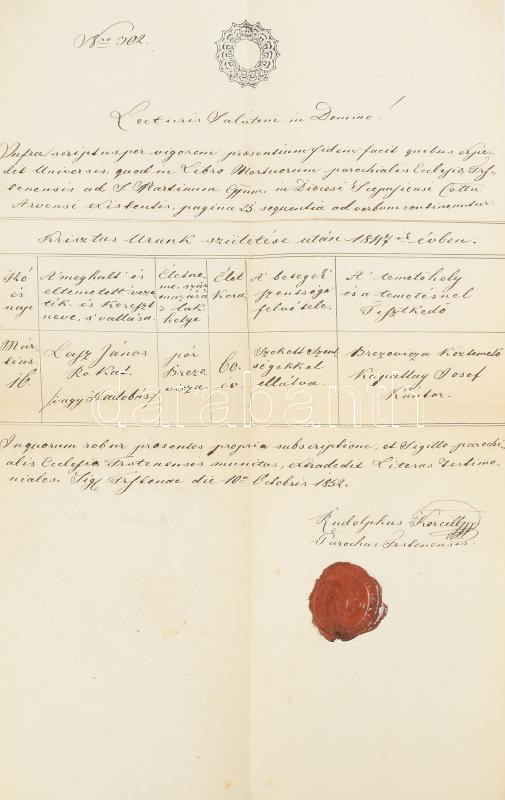 Nro 302.
Lecturis Salutem in Domino!
Infra scriptus per vigorem praesentium fidem facit quibus expe-
det Universis, quod in Libro Mortuorum parochialis Ecclesiae Trs-
tenensis ad S. Martinum Eppum. in Dioecesi Scepusiensi Cottu
Arvensi existentis, pagina 25 sequentia ad verbum contineantur.
Krisztus Urunk születése után 1847ik évben.
Hó és nap
A' meghalt és eltemetett veze-ték és kereszt neve, s' vallása.
Életne-me, szár-mazása s lak-helye
Élet Kora.
A' betegek szentsége felvétele.
A' temetőhely és a temetésnél Tisztkedő.
Már-tius 16.
Lasz János Ro. Kat.
pór Brezo-vicza
60. év.
Szokott Szent-ségekkel ellátva.
Brezovicza köztemető Kapallay Josef Kántor.
darabanth
In quorum robur praesentes propria subscriptione, et Sigillo parochi-
alis Ecclesiae Trstenensis munitas, extradedit Literas Testimo-
niales. Sig. Trstenae die 10a Octobris 1852.
Rudolphus
Parochus Trstenensis.